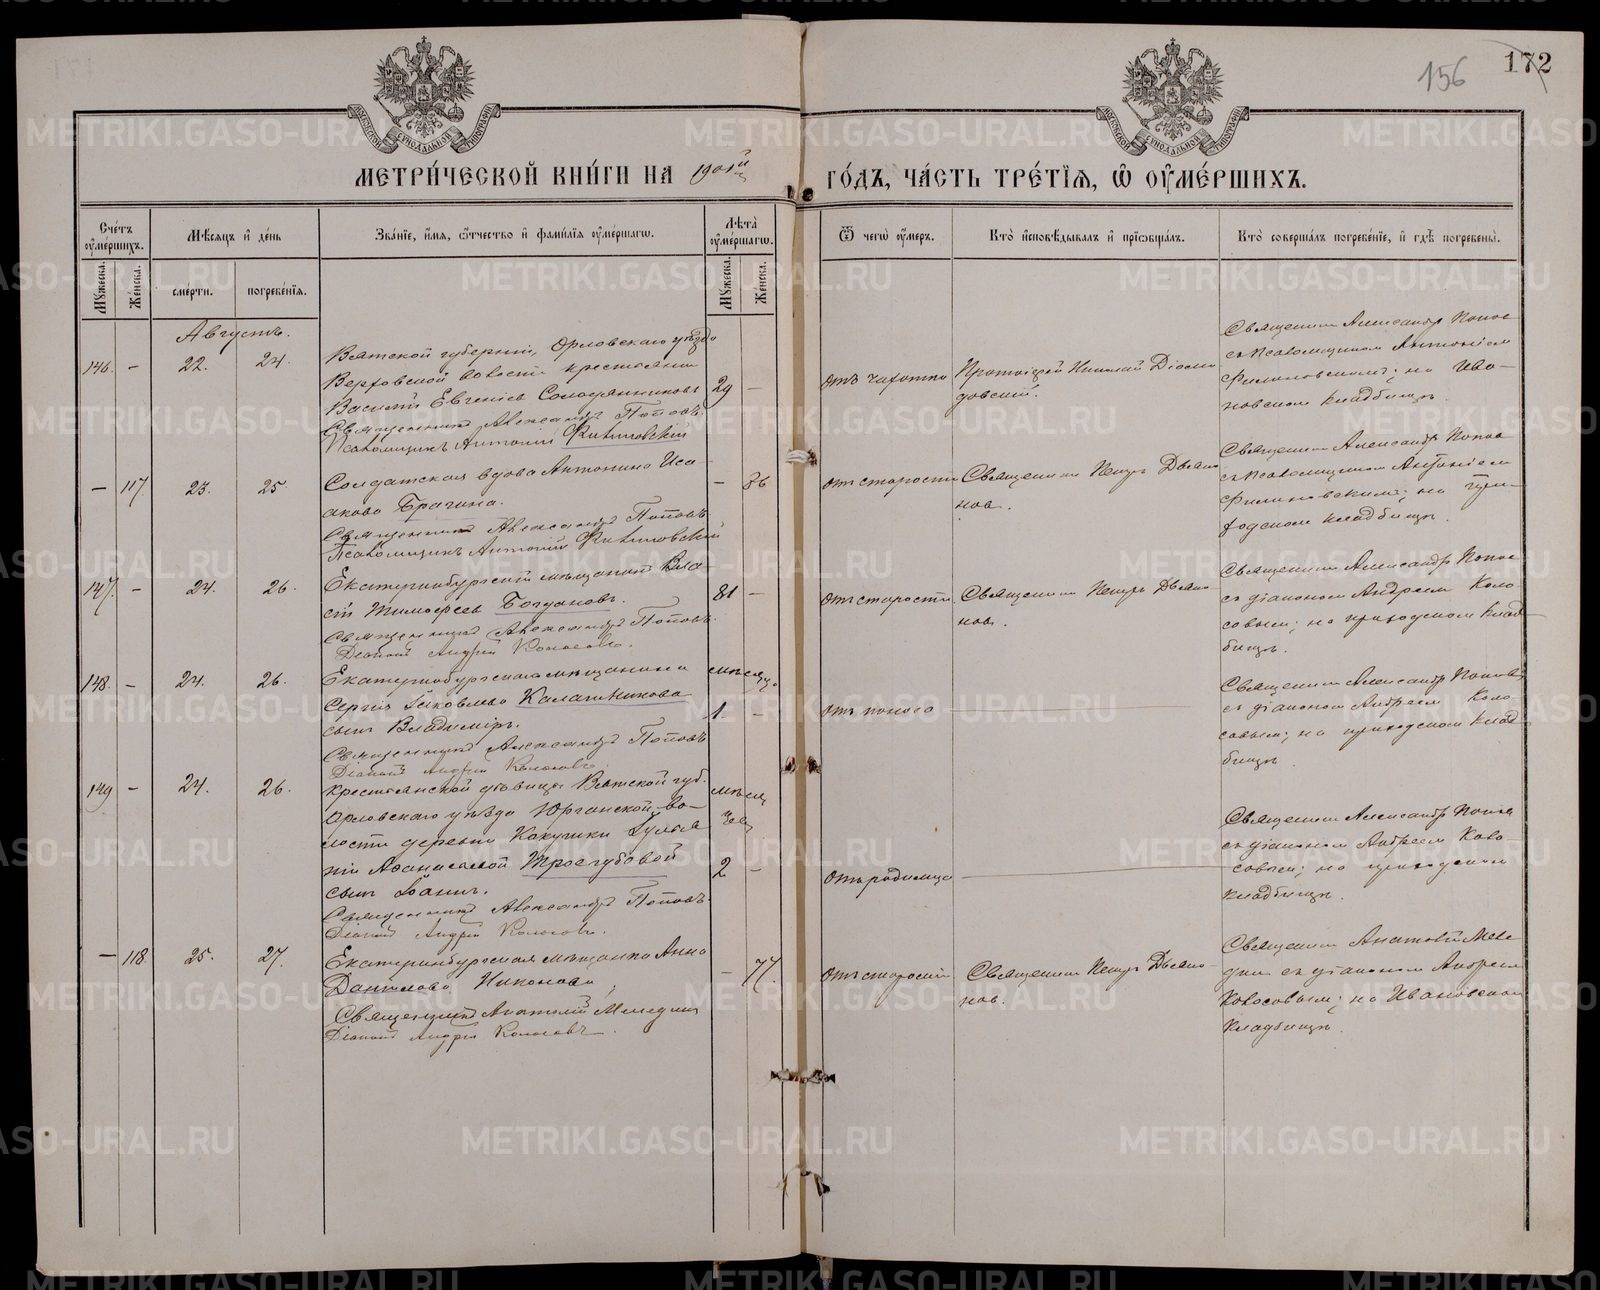 156
172
МОСКОВСКОЙ СѴНОДАЛЬНОЙ ТИПОГРАФІИ
МОСКОВСКОЙ СѴНОДАЛЬНОЙ ТИПОГРАФІИ
МЕТРИ́ЧЕСКОЙ КНИ́ГИ НА 1901й
ГО́ДЪ, ЧА́СТЬ ТРЕ́ТІѦ, Ѡ ОУМЕ́РШИХЪ.
Сче́тъ оуме́ршихъ.
Мѣ́сяцъ и де́нь
Зва́ніе, и́мя, ѻ҆́тчество и фами́лія оуме́ршагѡ.
Лѣ́та оуме́ршагѡ.
Ѿ чегѡ̀ оу́меръ.
Кто̀ и҆сповѣ́дывалъ и҆ прїѡбща́лъ.
Кто̀ соверша́лъ погребе́нїе, и҆ гдѣ̀ погребены̀.
Му́жеска.
Же́нска.
сме́рти.
погребе́нїя.
Му́жеска.
Же́нска.
Августъ.
146. — 22. 24.
Вятской губерніи, Орловскаго уѣзда
Верховской волости крестьянинъ
Василій Евгеніевъ Солодянниковъ
Священникъ Александръ Поповъ.
Псаломщикъ Антоній
29 —
отъ чахотки
Протоіерей Николай Діоми
довскій.
Священникъ Александръ Попов
съ псаломщикомъ Антоніем
на Ива-
новском кладбищѣ.
— 117 23. 25.
Солдатская вдова Антонина Иса
акова Брагина.
Священникъ Александръ Поповъ.
Псаломщикъ Антоній
— 86
отъ старости
Священникъ Петръ Дьяко
нов.
Священникъ Александр Попов
съ псаломщиком Антоніем
на при-
ходском кладбищѣ.
147. — 24. 26.
Екатеринбургскій мѣщанинъ Вла-
сій Тимофеев Богдановъ.
Священникъ Александръ Поповъ.
Діаконъ Андрей Колосовъ.
81 —
отъ старости
Священникъ Петръ Дьяко
нов.
Священникъ Александр Попов
съ діаконом Андреем Коло
совым; на приходском клад
бищѣ.
148. — 24. 26.
Екатеринбургскаго мѣщанина
Сергія Яковлева Калашникова
сынъ Владиміръ.
Священникъ Александръ Поповъ
Діаконъ Андрей Колосовъ.
мѣсяцъ
1. —
отъ поноса
Священникъ Александр Попов
съ діаконом Андреем Коло-
совым; на приходском клад
бищѣ.
149 — 24. 26.
Крестьянской дѣвицы Вятской губ.
Орловскаго уѣзда Юрганской во-
лости деревни Кокушки
Афанасьевой Троегубовой
сынъ Іоаннъ.
Священникъ Александръ Поповъ.
Діаконъ Андрей Колосовъ.
мѣся
цев
2 —
отъ родимца
Священникъ Александр Попов
съ діаконом Андреем Коло-
совым; на приходском
кладбищѣ.
— 118 25. 27.
Екатеринбургская мѣщанка Анна
Данилова Никонова
Священникъ Анатолій
Діаконъ Андрей Колосовъ.
— 77.
отъ старости
Священникъ Петръ Дьяко
нов.
Священникъ Анатолій
съ діаконом Андреем
Колосовым; на Ивановском
кладбищѣ.
METRIKI.GASO-URAL.RU